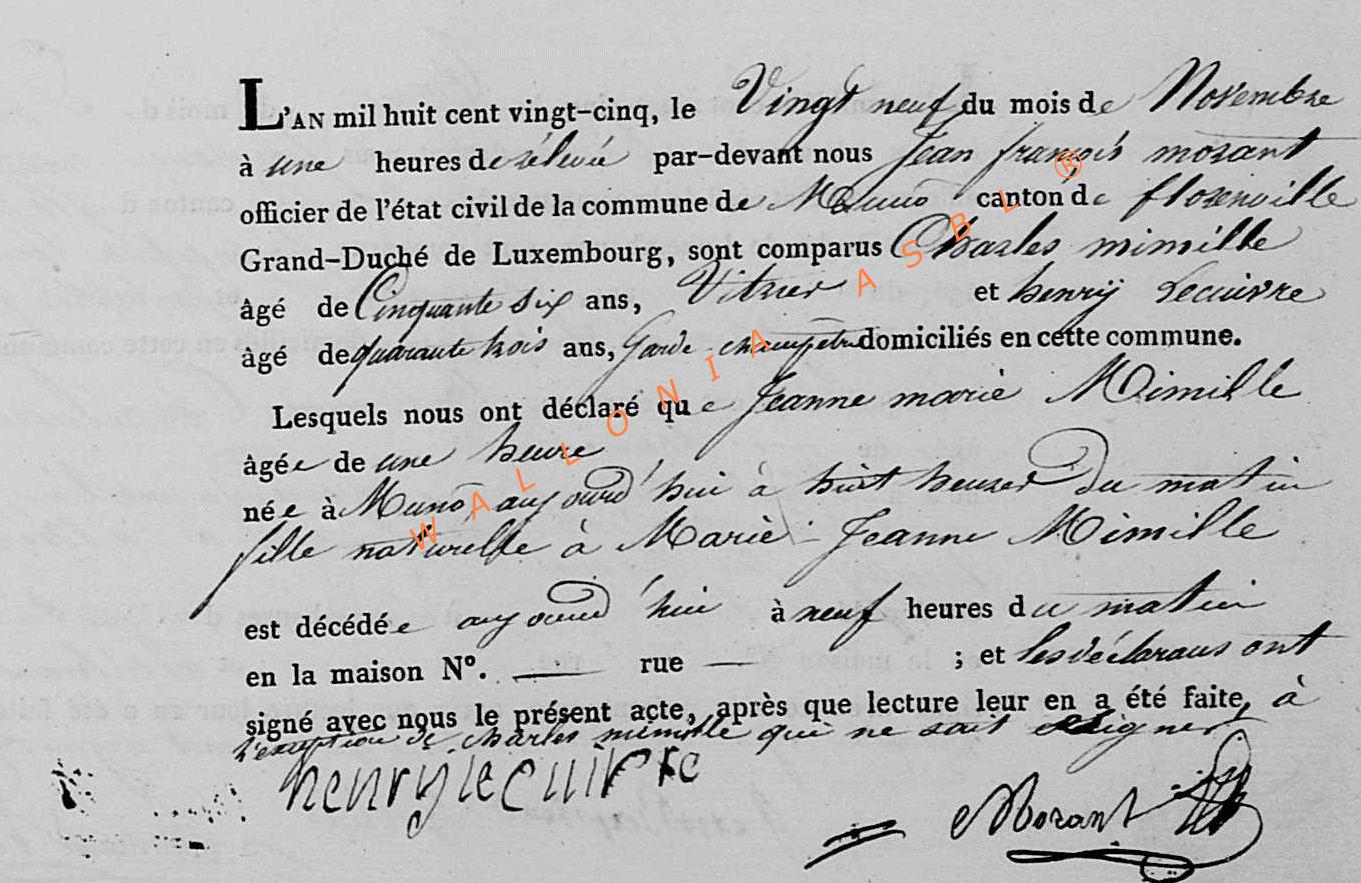 L'AN mil huit cent vingt-cinq, le Vingt neuf du mois de Novembre
à une heures de rélevée par-devant nous Jean françois morant
officier de l'état civil de la commune de Muno canton de florenville
Grand-Duché de Luxembourg, sont comparus Charles mimille
âgé de Cinquante Six ans, Vitrier et henry Lecuivre
âgé de quarante trois ans, Garde champetre domiciliés en cette commune.
Lesquels nous ont déclaré que Jeanne marie Mimille
âgée de une heure
née à Muno aujourd'hui à huit heures du matin
fille naturelle à Marie-Jeanne Mimille
est décédée aujourd'hui à neuf heures du matin
en la maison N°. — rue — ; et les déclarans ont
signé avec nous le présent acte, après que lecture leur en a été faite, à
l'exeption de Charles mimille qui ne sait signer
henry le cuivre
Morant
WALLONIA ASBL ®